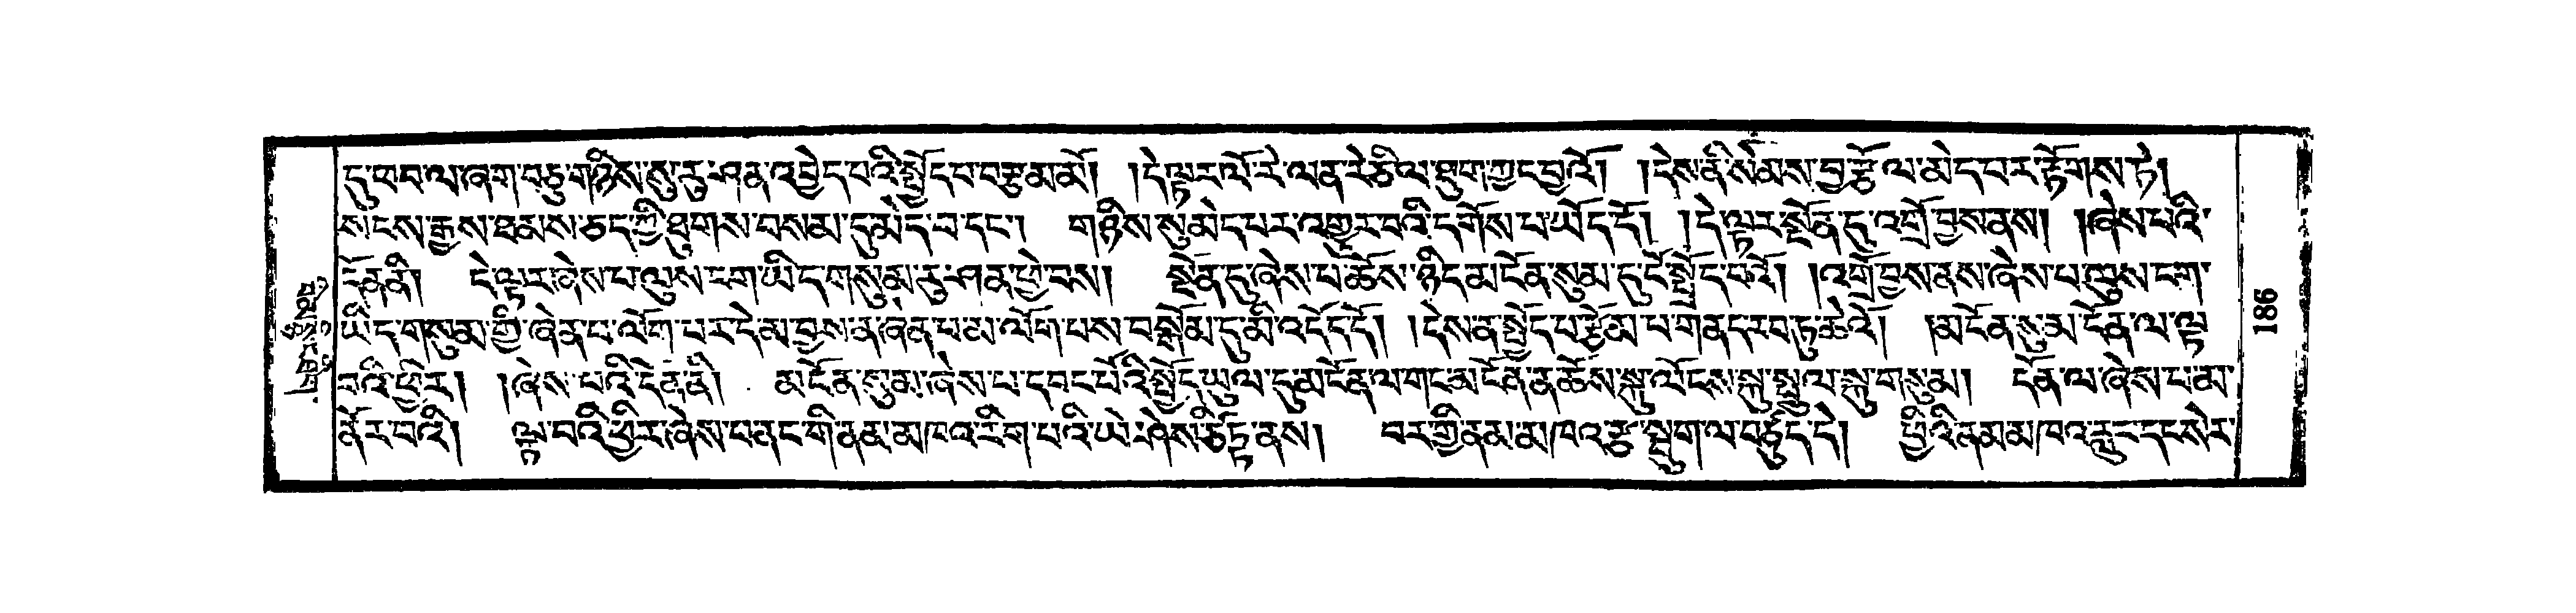 དུ་བབ་ལ་ཞག་བཅུ་གཉིས་སུ་རུ་ཤན་འབྱེད་པའི་སྤྱོད་པ་བརྩམ་མོ། །དེ་ལྟར་ལོ་རེ་ལན་རེ་ཅིལ་ཐུག་ཀྱང་བྱའོ། །དེས་ནི་སེམས་བྱ་རྩོལ་མེད་པར་རྟོགས་ཏེ།
སངས་རྒྱས་ཐམས་ཅད་ཀྱི་ཐུགས་བསམ་དུ་མེད་པ་དང་། གཉིས་སུ་མེད་པར་འགྱུར་བའི་དགོས་པ་ཡོད་དོ། །དེ་ལྟར་སྔོན་དུ་འགྲོ་བྱས་ནས། །ཞེས་པའི་
དོན་ནི། དེ་ལྟར་ཞེས་པ་ལུས་ངག་ཡིད་གསུམ་རུ་ཤན་ཕྱེ་བས། སྔོན་དུ་ཞེས་པ་ཆོས་ཉིད་མངོན་སུམ་དུ་ངོ་སྤྲོད་པའོ། །འགྲོ་བྱས་ནས་ཞེས་པ་ལུས་ངག་
ཡིད་གསུམ་གྱི་ཞེན་པ་ལོག་པར་དེ་མ་བྱས་ན་ཞེན་པ་མ་ལོག་པས་བསྒོམ་དུ་མི་འདོད་དོ། །དེས་ན་སྤྱོད་པ་རྩོམ་པ་གནད་རབ་ཏུ་ཆེའོ། །མངོན་སུམ་དོན་ལ་ལྟ
བའི་ཕྱིར། །ཞེས་པའི་དོན་ནི། མངོན་སུམ་ཞེས་པ་དབང་པོའི་སྤྱོད་ཡུལ་དུ་མངོན་ལ་གང་མངོན་ན་ཆོས་སྐུ་ལོངས་སྐུ་སྤྲུལ་སྐུ་གསུམ། དོན་ལ་ཞེས་པ་མ་
ནོར་བའི། ལྟ་བའི་ཕྱིར་ཞེས་པ་ནང་གི་ནམ་མཁའ་རིག་པའི་ཡེ་ཤེས་ཙིཏྟ་ནས། བར་གྱི་ནམ་མཁའ་རྩ་སྦུག་ལ་བརྒྱུད་དེ། ཕྱིའི་ནམ་མཁའ་རླུང་དང་སེར་
186